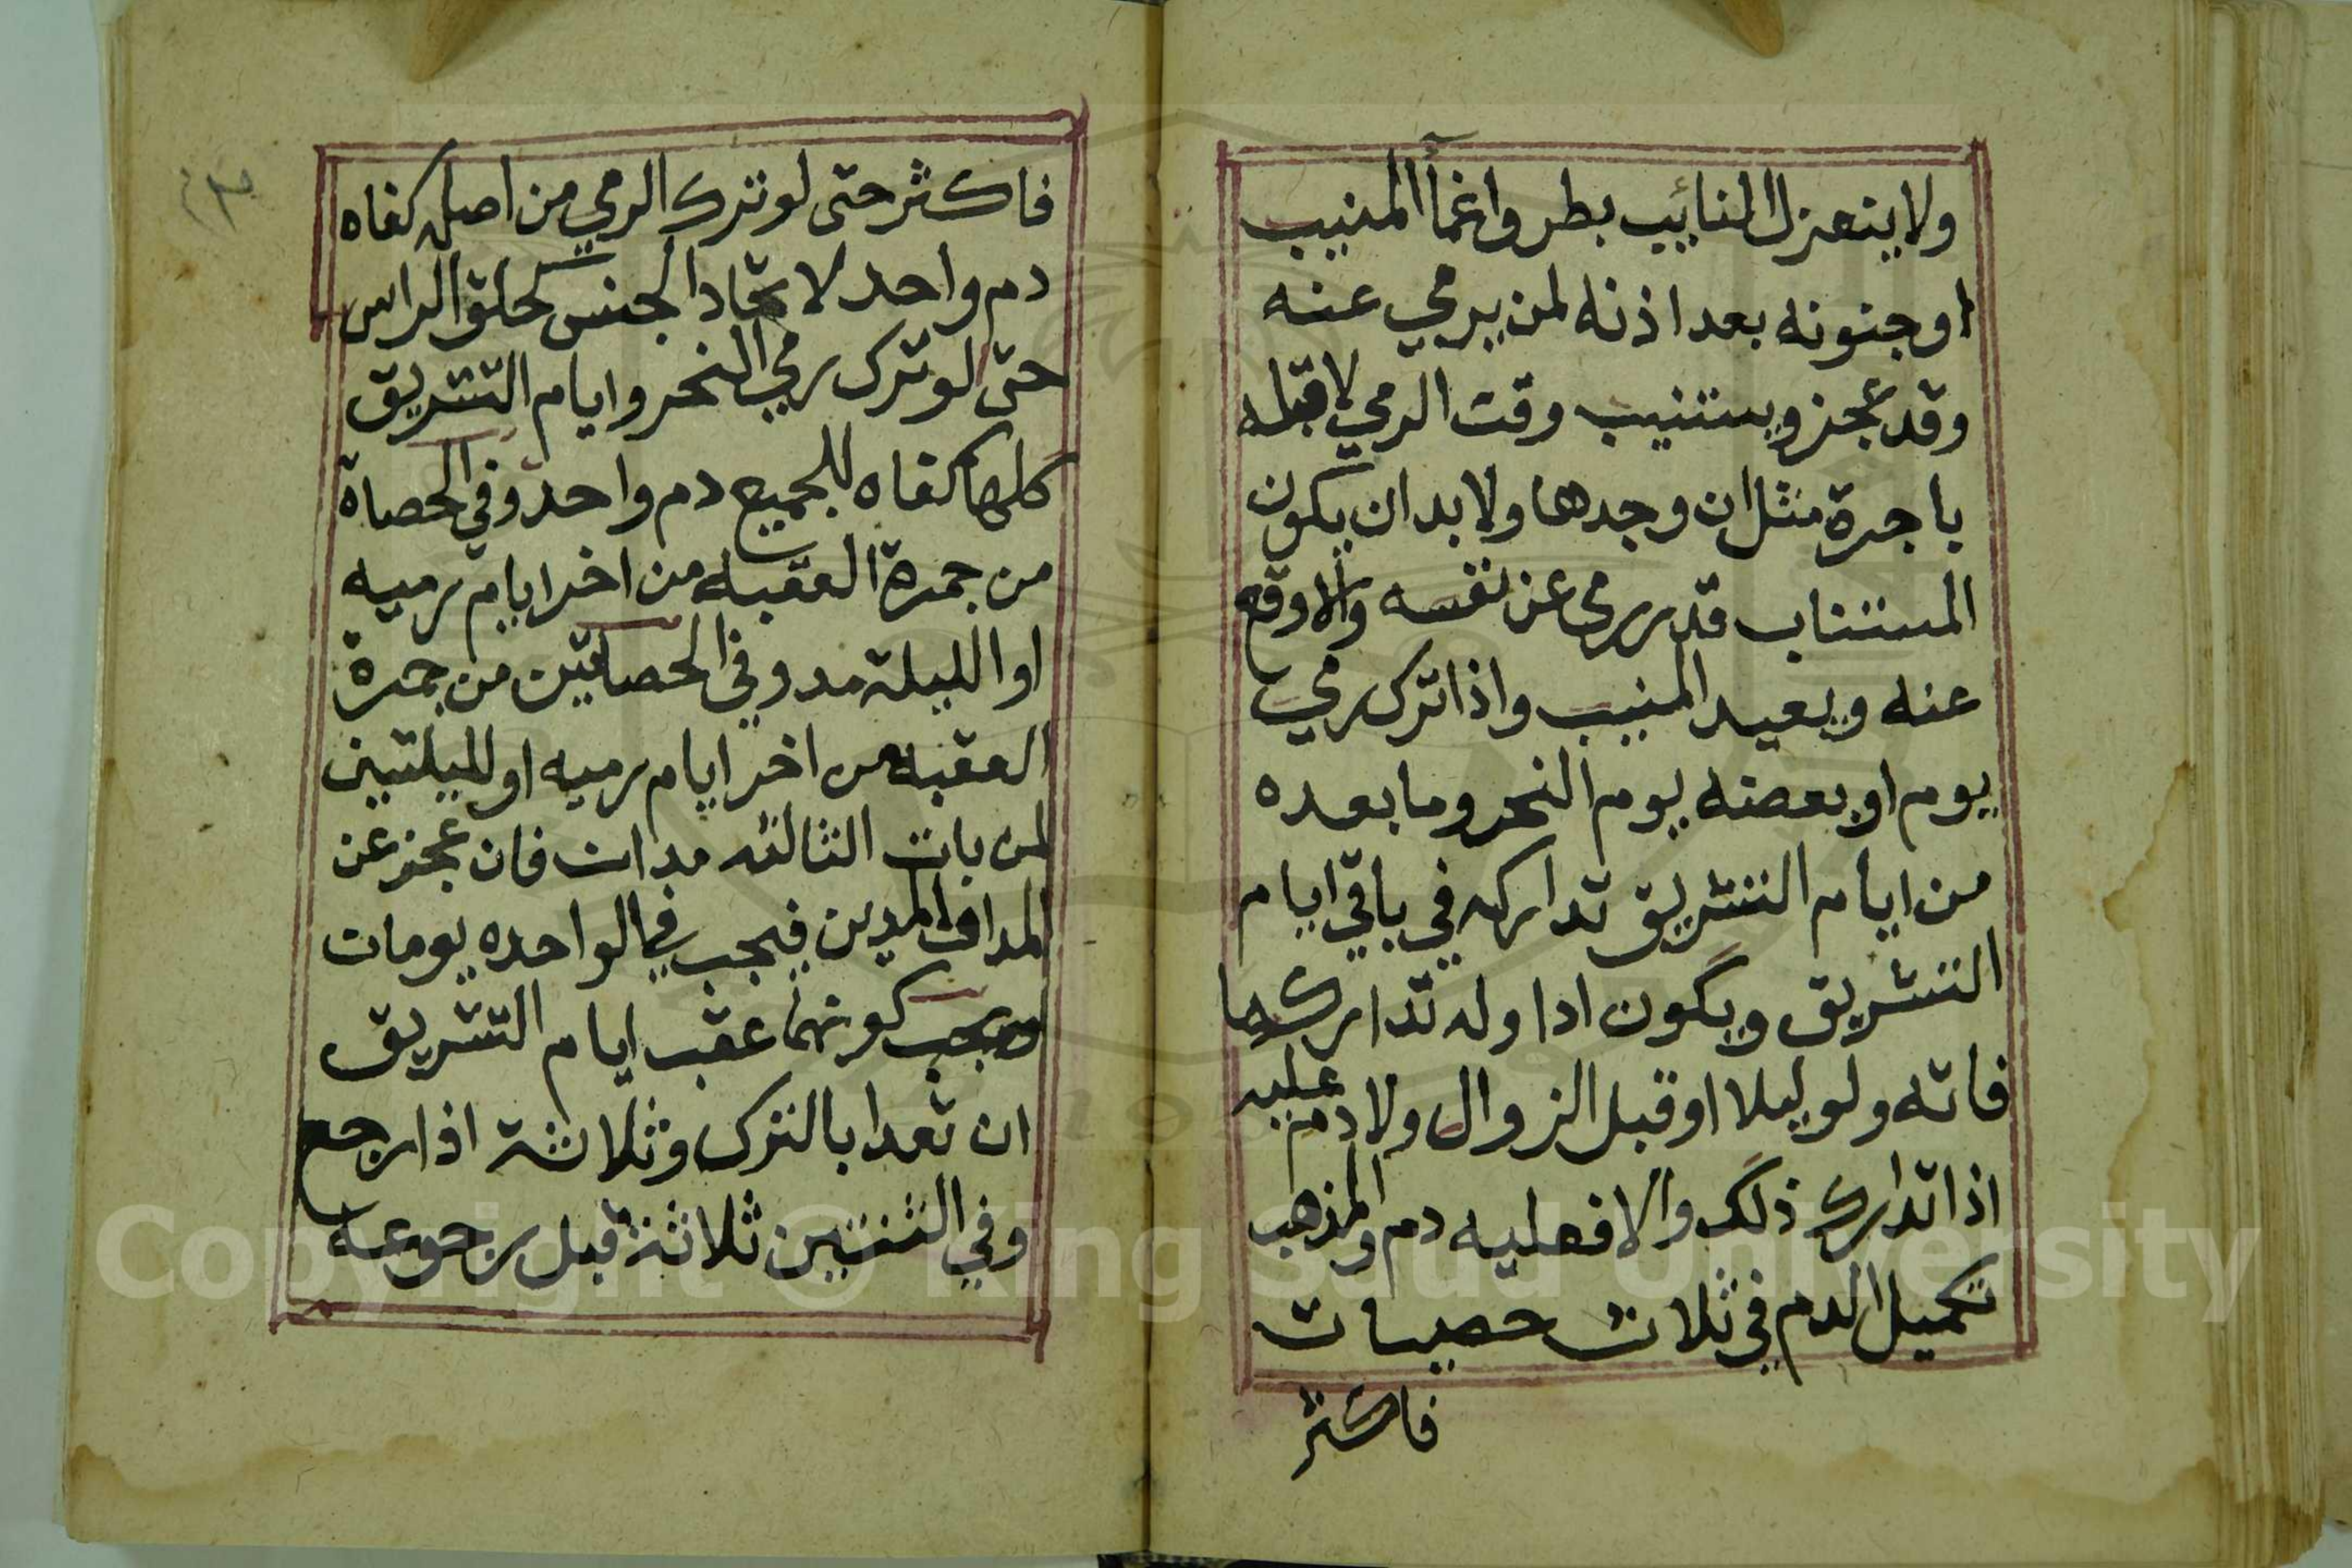 ولا ينعزل النائب بطرو اغماٱ المنيب
او جنونه بعد اذنه لمن يرمي عنه
وقد عجز ويستنيب وقت الرمي لا قبله
باجرة مثل ان وجدها ولا بد ان يكون
المستناب قد رمى عن نفسه والا وقع
عنه ويعيد المنيب واذا ترك رمي
يوم او بعضه يوم النحر وما بعده
من ايام التشريق تداركه في باقي ايام
التشريق ويكون ادا وله تدارك ما
فاته ولو ليلا او قبل الزوال ولا دم عليه
اذا تدارك ذلك والا فعليه دم والمذهب
تكميل الدم في ثلاث حصيات
فاكثر
فاكثر حتى لو ترك الرمي من اصله كفاه
دم واحد لاتحاد الجنس كحلق الراس
حتى لو ترك رمي النحر وايام التشريق
كلها كفاه للجميع دم واحد وفي الحصاة
من جمرة العقبه من اخر ايام رميه
او الليلة مد وفي الحصاتين من جمرة
العقبه من اخر ايام رميه او لليلتين
لمن بات الثالثه مدان فان عجز عن
المد او المدين فيجب في الواحده يومان
ويجب كونهما عقب ايام التشريق
ان تعدا بالترك وثلاثة اذا رجع
وفي الثنتين ثلاثة قبل رجوعه
Copyright © King Saud University